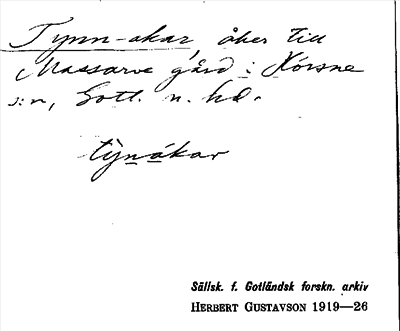 Tynn-akar, åker till
Massarve gård i Hörsne
s:n, Gotl. n. hd.
týnákar
Sällsk. f. Gotländsk forskn. arkiv
HERBERT GUSTAVSON 1919—26